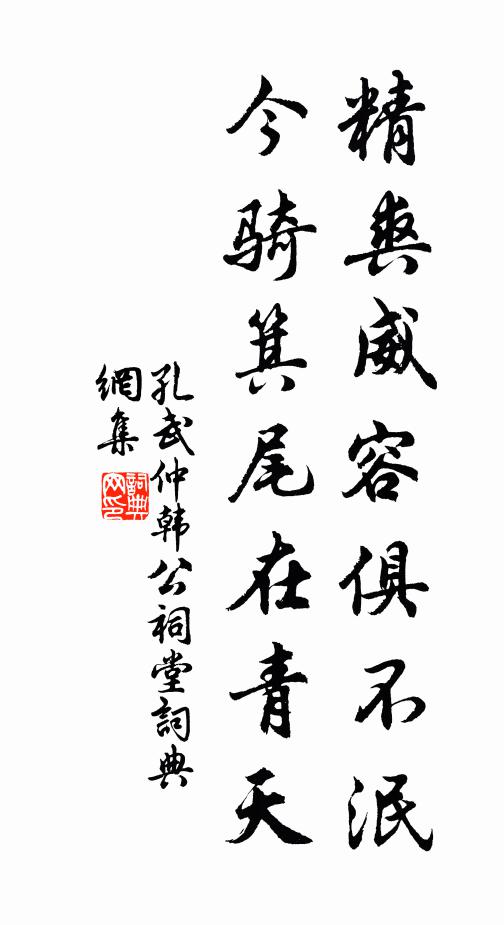 精爽威容俱不泯
今骑箕尾在青天
孔武仲韩公祠堂詞典
網集
詞典网印